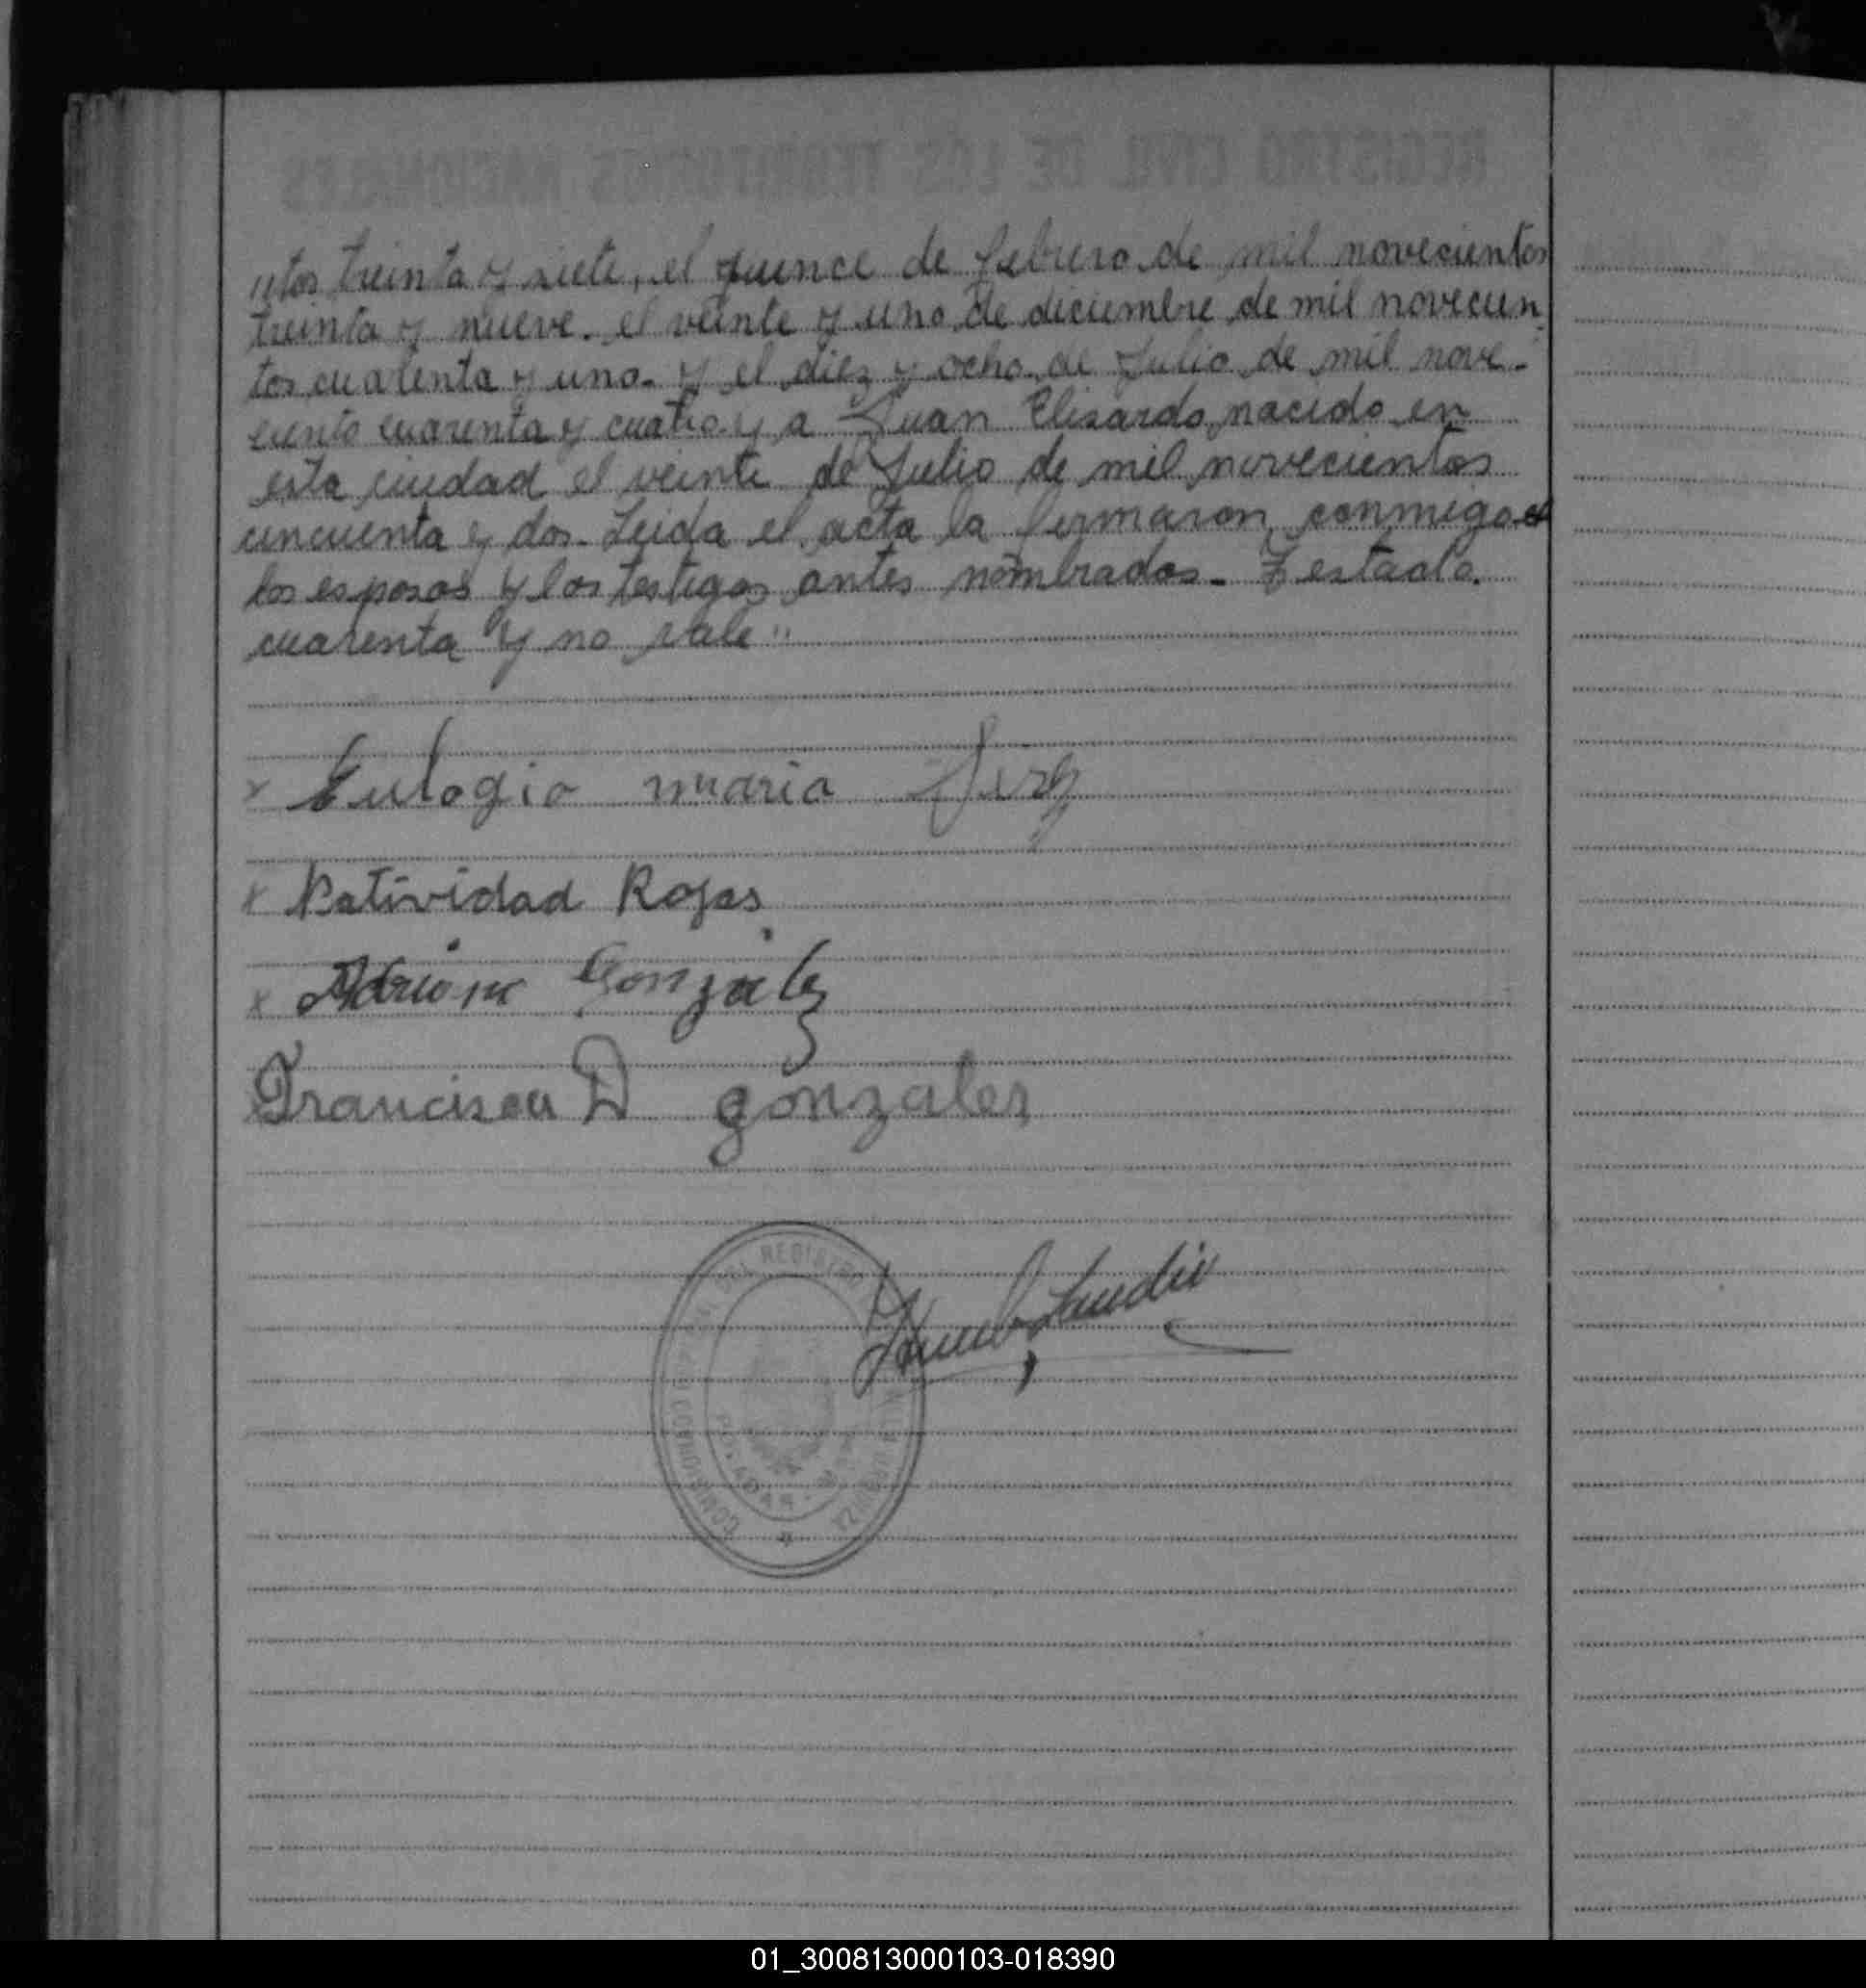 ntos treinta y siete, el quince de febrero de mil novecientos
treinta y nueve. el veinte y uno de diciembre de mil novecien
tos cuarenta y uno. y el diez y ocho de Julio de mil nove-
ciento cuarenta y cuatro y a Juan Elisardo, nacido en
esta ciudad el veinte de Julio de mil novecientos
cincuenta y dos. Leida el acta la firmaron conmigo
los esposos y los testigos antes nombrados. Testado
cuarenta y no vale"
x Eulogio maria
x Natividad Rojas
x Gonzalez
Francisca D gonzales
DEL REGISTRO
01_300813000103-018390